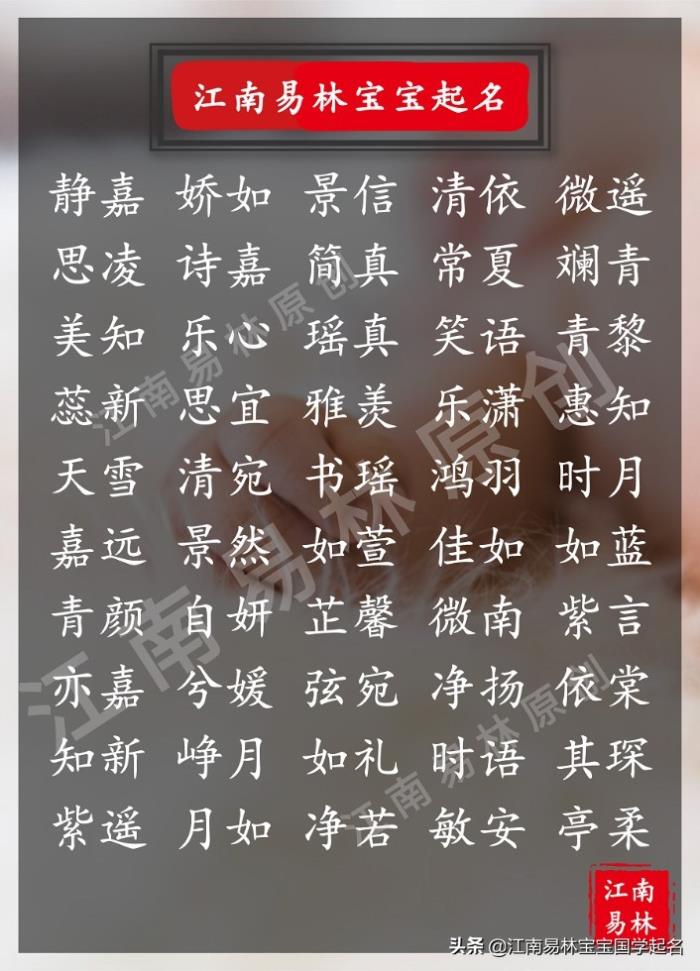 江南易林宝宝起名
静嘉 娇如 景信 清依 微遥
思凌 诗嘉 简真 常夏 斓青
美知 乐心 瑶真 笑语 青黎
蕊新 思宜 雅羡 乐潇 惠知
天雪 清宛 书瑶 鸿羽 时月
嘉远 景然 如萱 佳如 如蓝
青颜 自妍 芷馨 微南 紫言
亦嘉 兮媛 弦宛 净扬 依棠
知新 峥月 如礼 时语 其琛
紫遥 月如 净若 敏安 亭柔
江南易林原创
江南易林原创
江南易林原创
江南
易林
头条 @江南易林宝宝国学起名